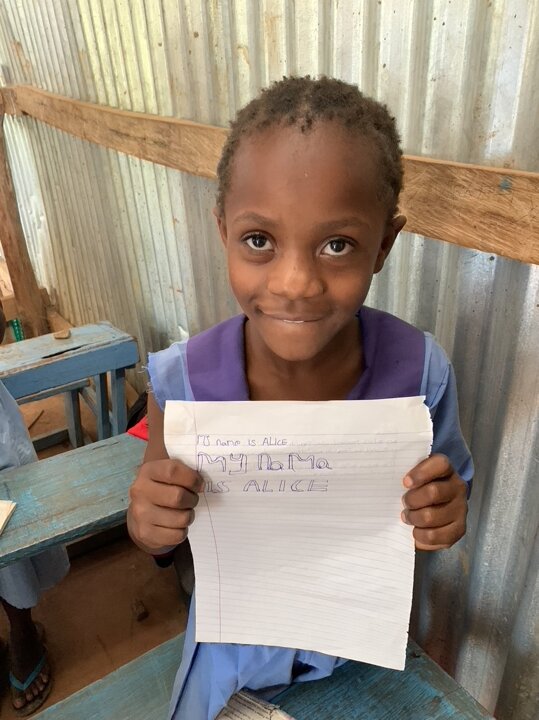 My name is ALICE
MY NaMa
IS ALICE